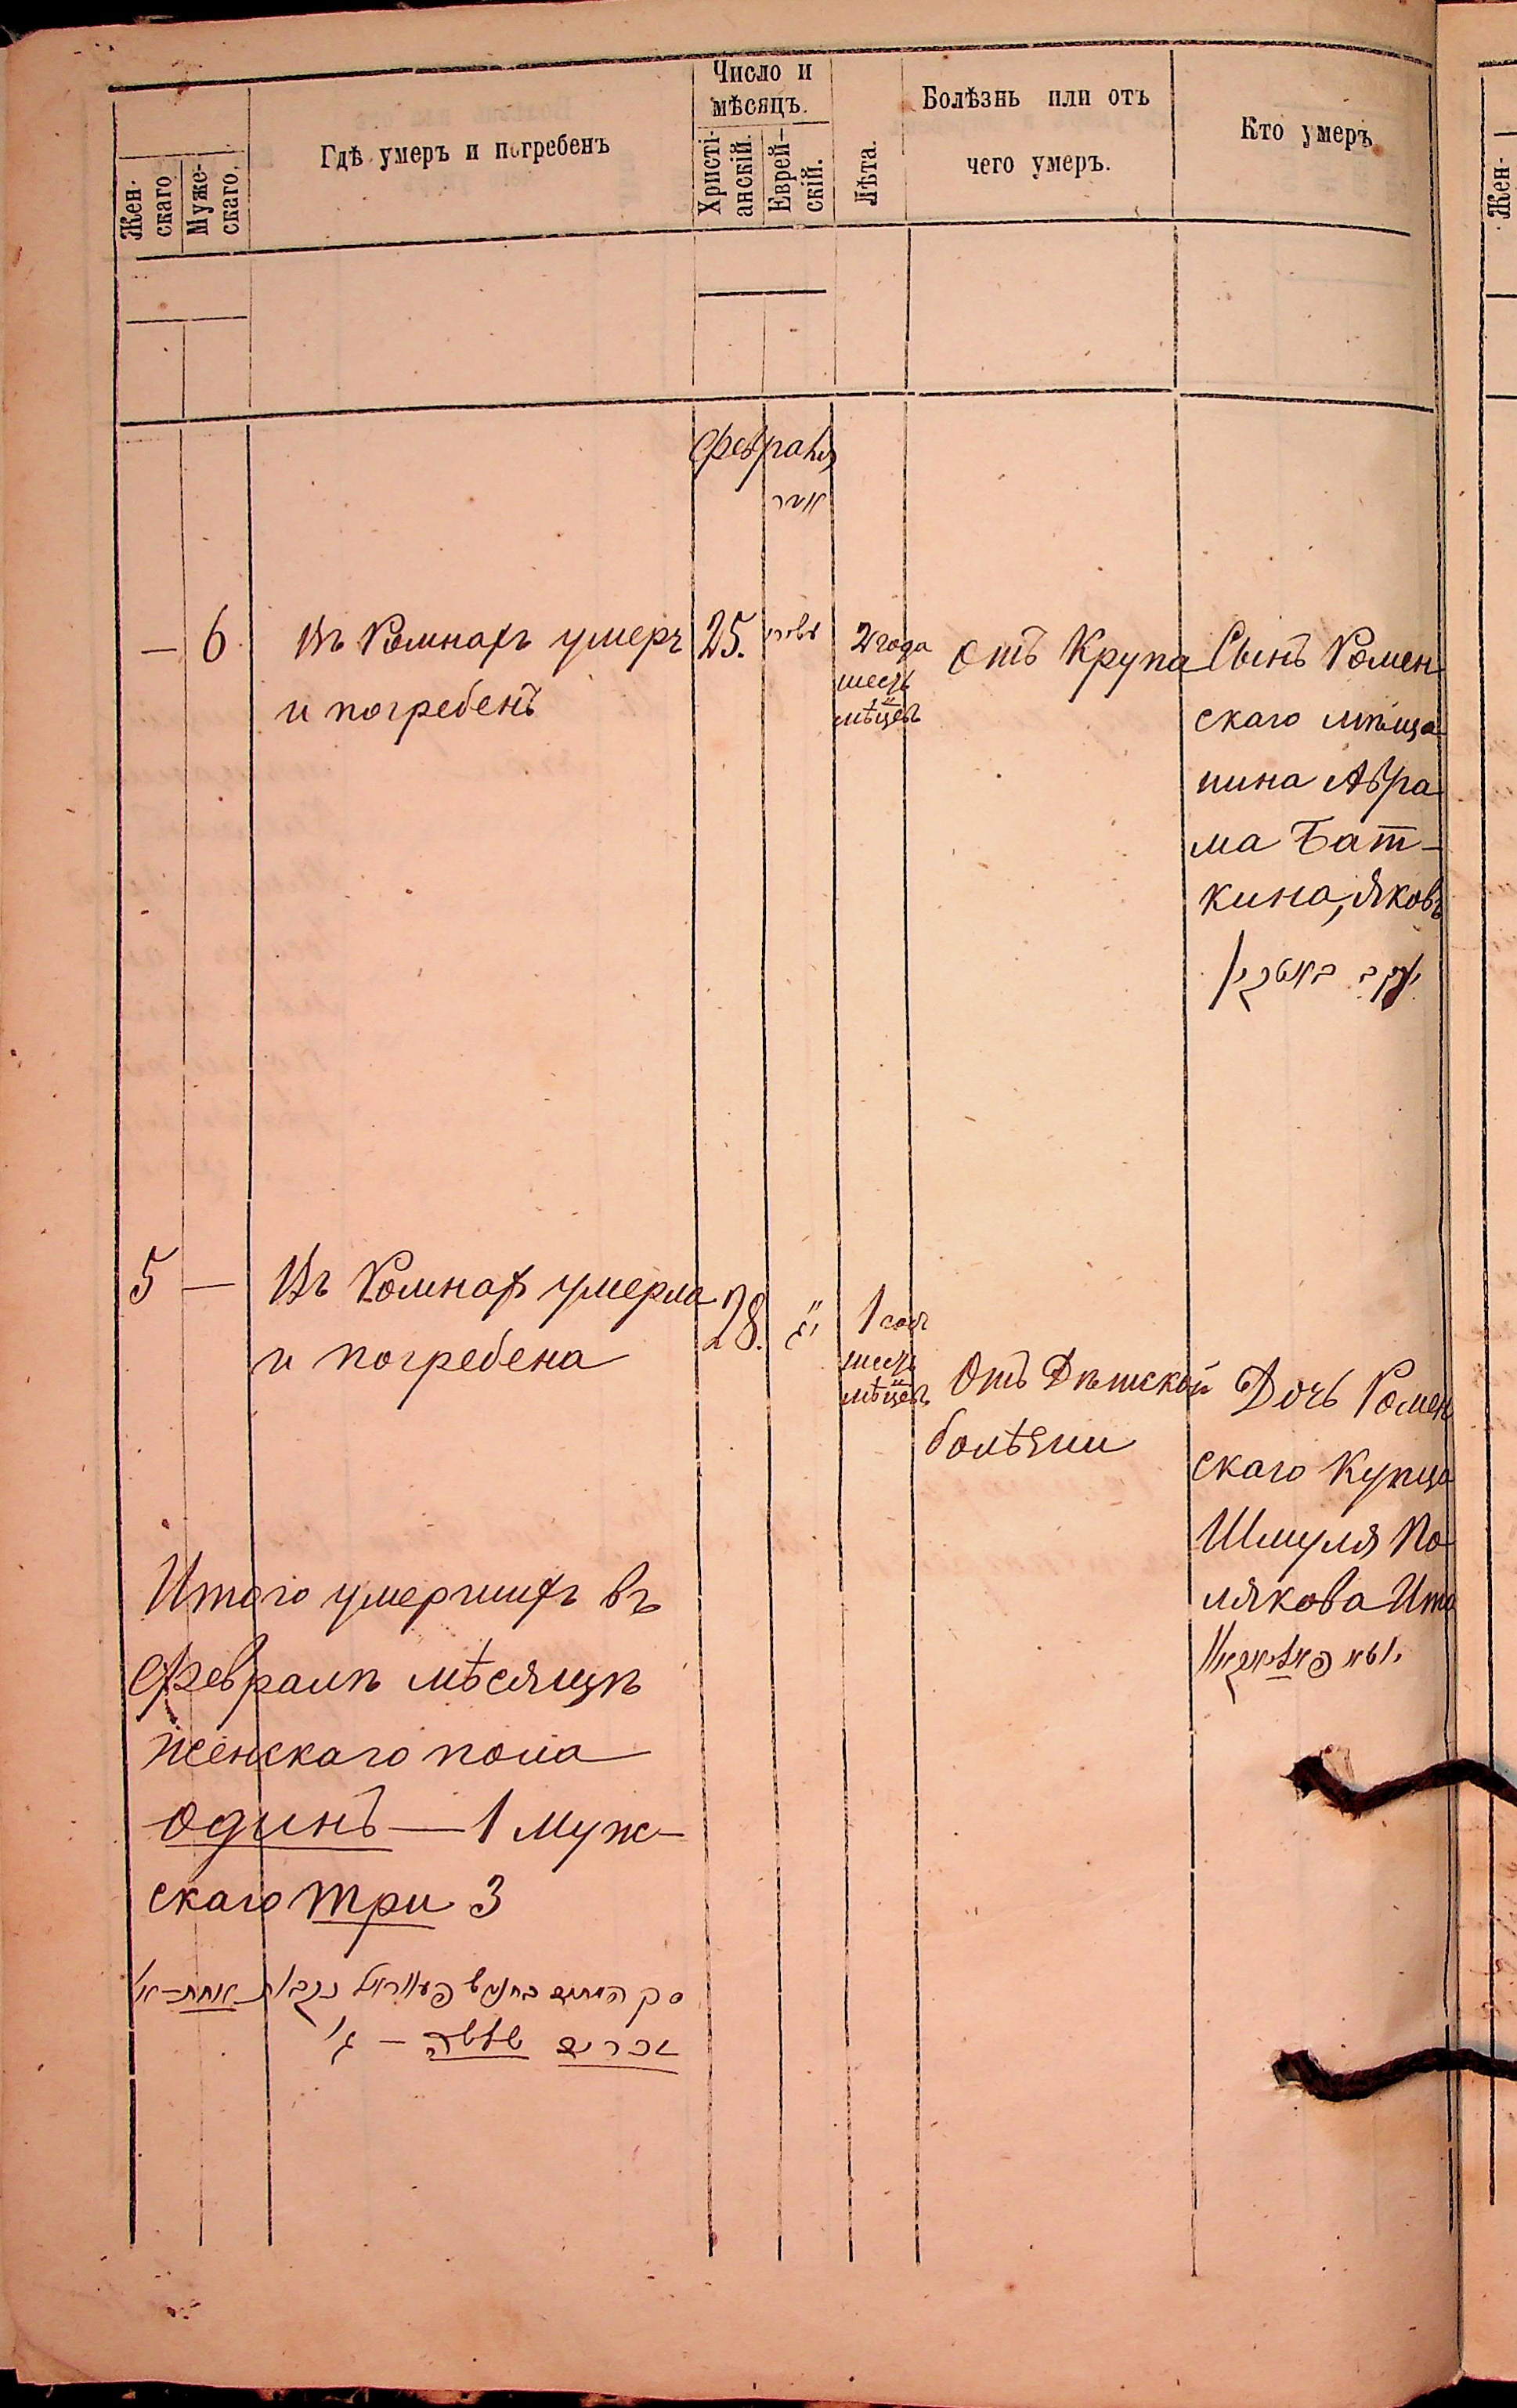 Жен-
скаго
Муже-
скаго.
Гдѣ умеръ и погребенъ
Число и
мѣсяцъ.
Христі-
анскій.
Еврей-
скій.
Лѣта.
Болѣзнь или отъ
чего умеръ.
Кто умеръ
Жен-
Февраля
אדר
— 6
Въ Ромнахъ умеръ
и погребенъ
25.
2 года
шесть
мѣцевъ
Отъ Крупа
Сынъ Ромен
скаго мѣща
нина Абра
ма Бат-
кина, Яковъ
יעקב באטקין
5 —
Въ Ромнах умерла
и погребена
28.
1 годъ
шесть
мѣцевъ
Отъ Дѣтской
болѣзни
Дочь Ромен
скаго Купца
Шмуля По
лякова Ита
איטא פאליאקאוו
Итого умершихъ въ
Февралѣ мѣсяцѣ
женскаго пола
одинъ — 1 муж-
скаго три 3
סך המתים בחודש פעוראל נקבות אחת – א׳
זכרים שלשה – ג׳